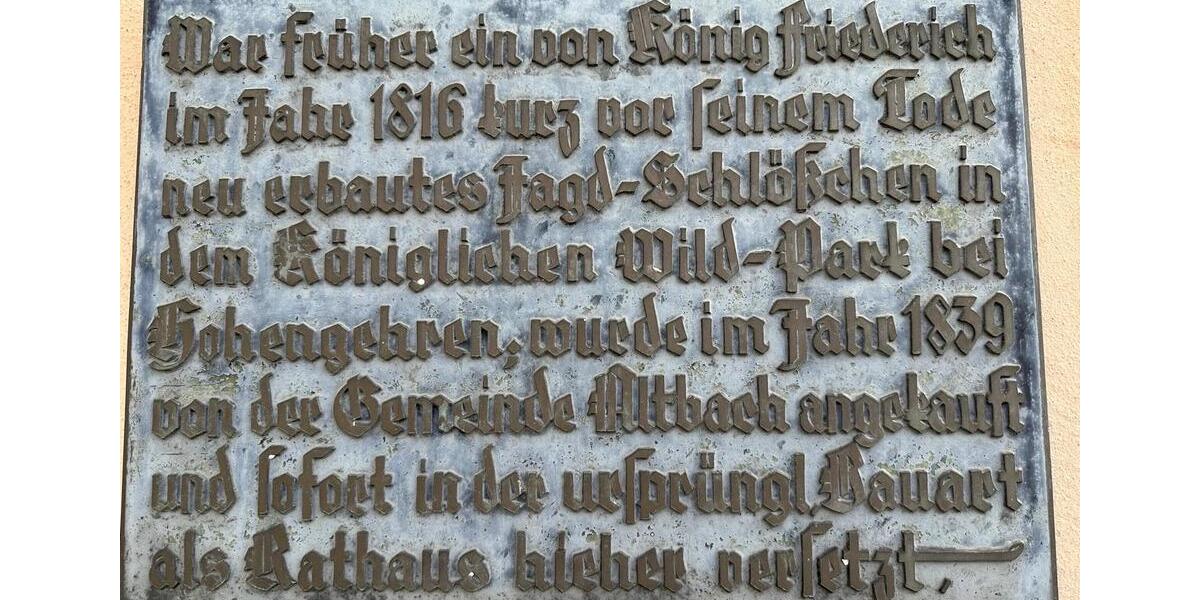 War früher ein von König Friederich
im Jahr 1816 kurz vor seinem Tode
neu erbautes Jagd-Schlößchen in
dem Königlichen Wild-Park bei
Hohengehren, wurde im Jahr 1839
von der Gemeinde Altbach angekauft
und sofort in der ursprüngl. Bauart
als Rathaus hieher versetzt.